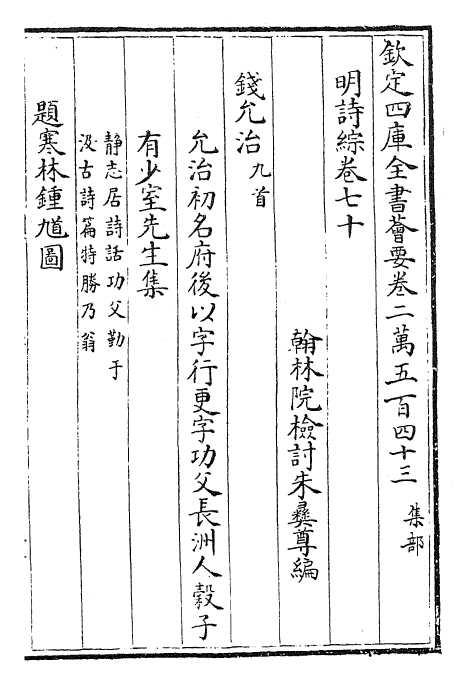 欽定四庫全書薈要卷二萬五百四十三 集部
明詩綜卷七十
翰林院檢討朱彝尊編
錢允治 九首
允治初名府後以字行更字功父長洲人穀子
有少室先生集
静志居詩話功父勤于
汲古詩篇特勝乃翁
題寒林鍾馗圖